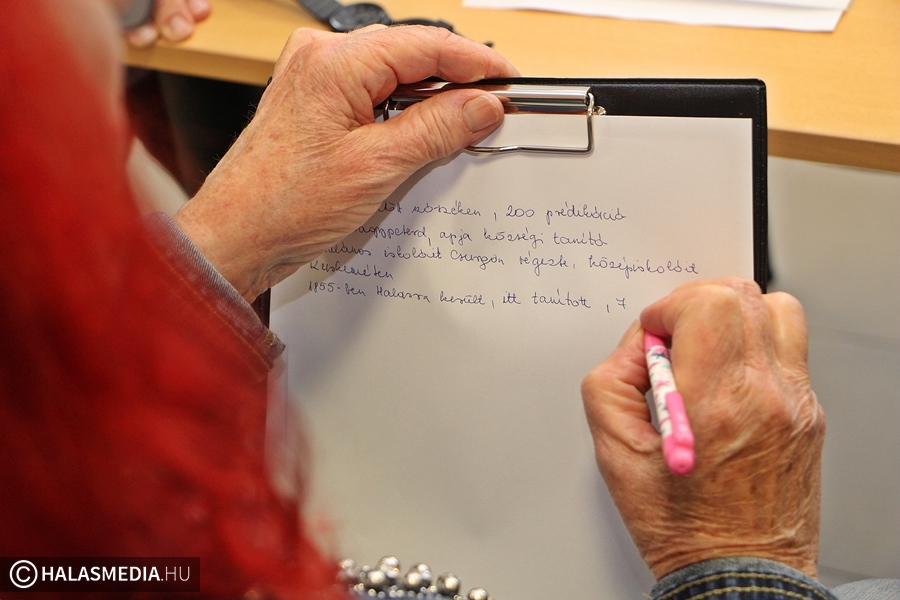 székén, 200 prédikáció
apja községi tanító
iskoláit Csurgón végezte, középiskoláit
Kecskeméten
1855-ben Halasra került, itt tanított, 7
©HALASMEDIA.HU